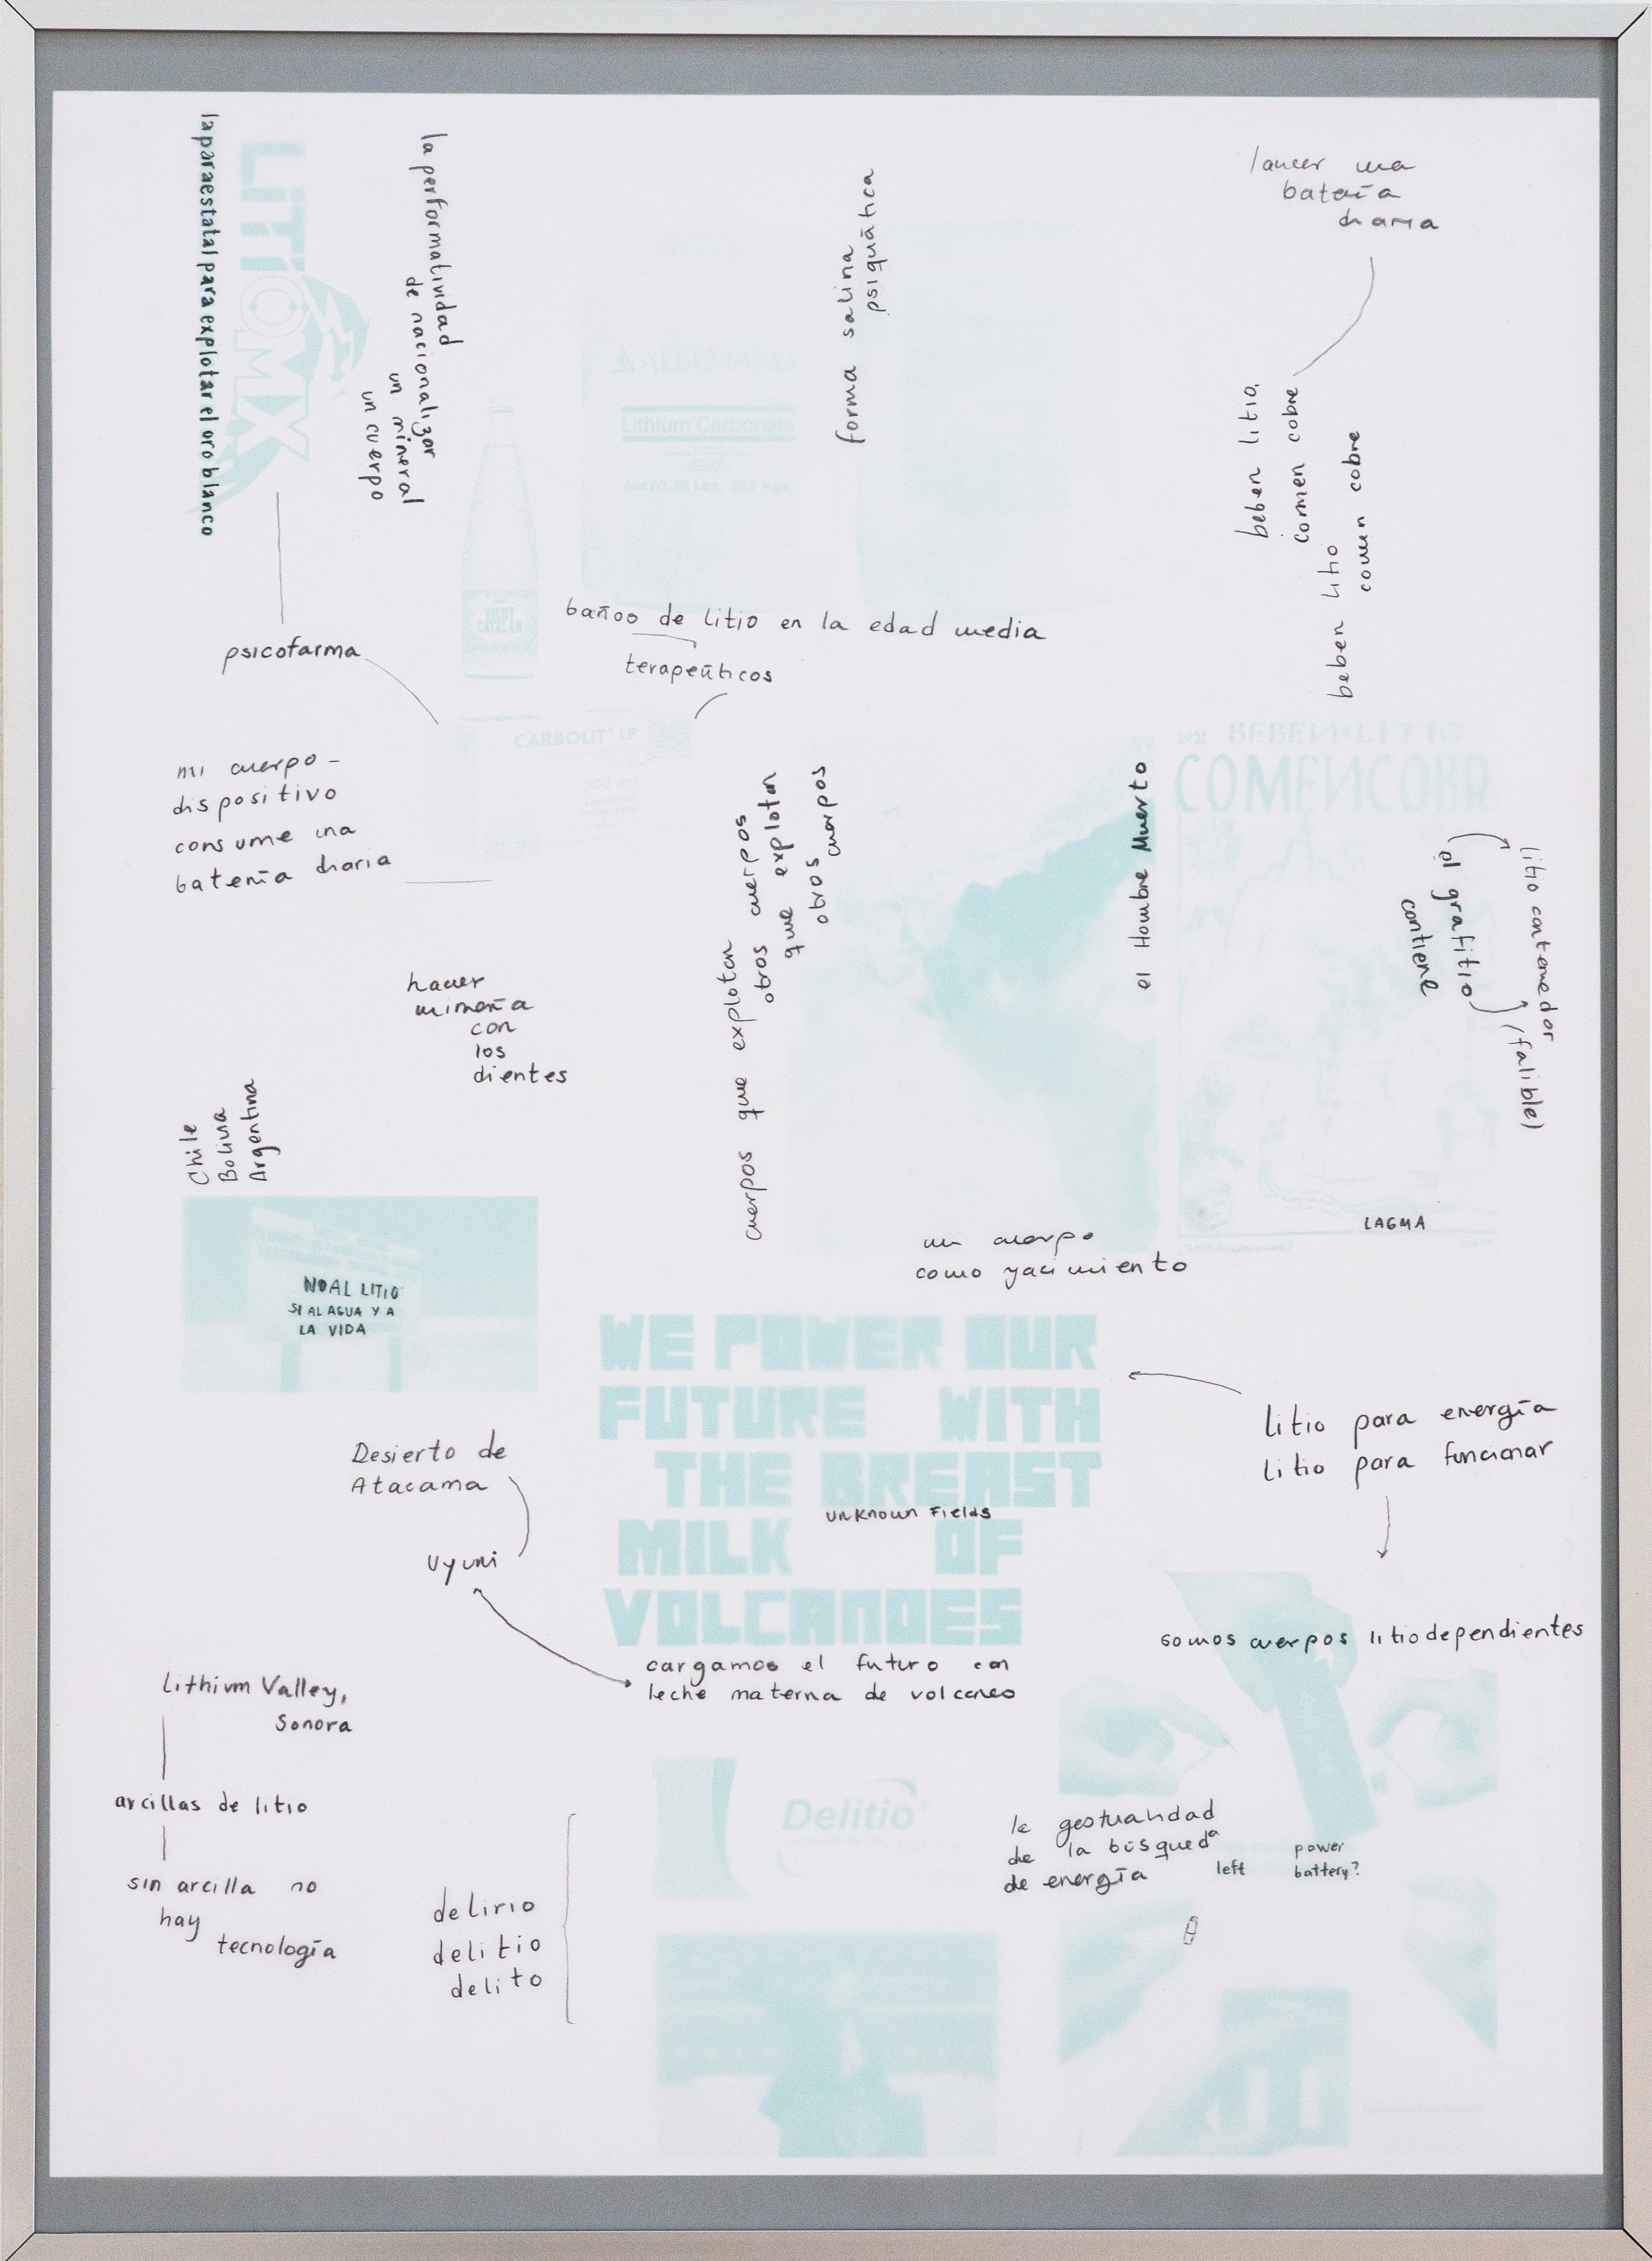 la paraestatal para explotar el oro blanco
LITIOMX
la performatividad
de nacionalizar
un mineral
un cuerpo
forma salina
psiquiática
una
batería
diaria
ALBEMARLE
Lithium Carbonate
Net Wt. 50 Lbs. 22.7 Kgs.
VICHY
CATALAN
beben litio,
comen cobre
beben litio
comen cobre
baños de litio en la edad media
terapeúticos
psicofarma
CARBOLIT LP
300 mg
mi cuerpo-
dispositivo
consume una
batería diaria
cuerpos que explotan
otros cuerpos
que explotan
otros cuerpos
el Hombre Muerto
2021 BEBEN LITIO
COMENCOBR
litio contenedor
(falible)
el grafitio
contiene
LAGMA
hacer
minería
con
los
dientes
Chile
Bolivia
Argentina
NO AL LITIO
SI AL AGUA Y A
LA VIDA
mi cuerpo
como yacimiento
WE POWER OUR
FUTURE WITH
THE BREAST
MILK OF
VOLCANOES
unknown Fields
litio para energía
litio para funcionar
Desierto de
Atacama
Uyuni
somos cuerpos litiodependientes
cargamos el futuro con
leche materna de volcanes
Lithium Valley,
Sonora
arcillas de litio
sin arcilla no
hay
tecnología
Delitio
delirio
delitio
delito
la gestualidad
de la búsqueda
de energía
left
power
battery?